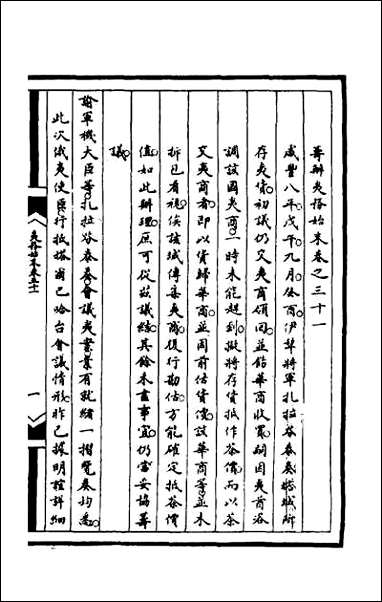 籌辦夷務始末卷之三十一
咸豐八年戊午九月癸酉伊犂將軍扎拉芬泰奏塔城所
存夷貨初議仍交夷商領回並飭華商收買嗣因夷酋洛
調該國夷商一時未能趕到擬將存貨抵作茶價而以茶
交夷商者即以貨歸華商並因前估貨價該華商等並未
拆包看視俟該城傳集夷商復行勘估方能確定抵茶價
值如此辦理庶可從茲議結其餘未盡事宜仍當妥協籌
議
諭軍機大臣等扎拉芬泰奏會議夷案業有就緒一摺覽奏均悉
此次俄夷使臣行抵塔爾巴哈台會議情形昨已探明程詳細
夷務始末卷三十一
一